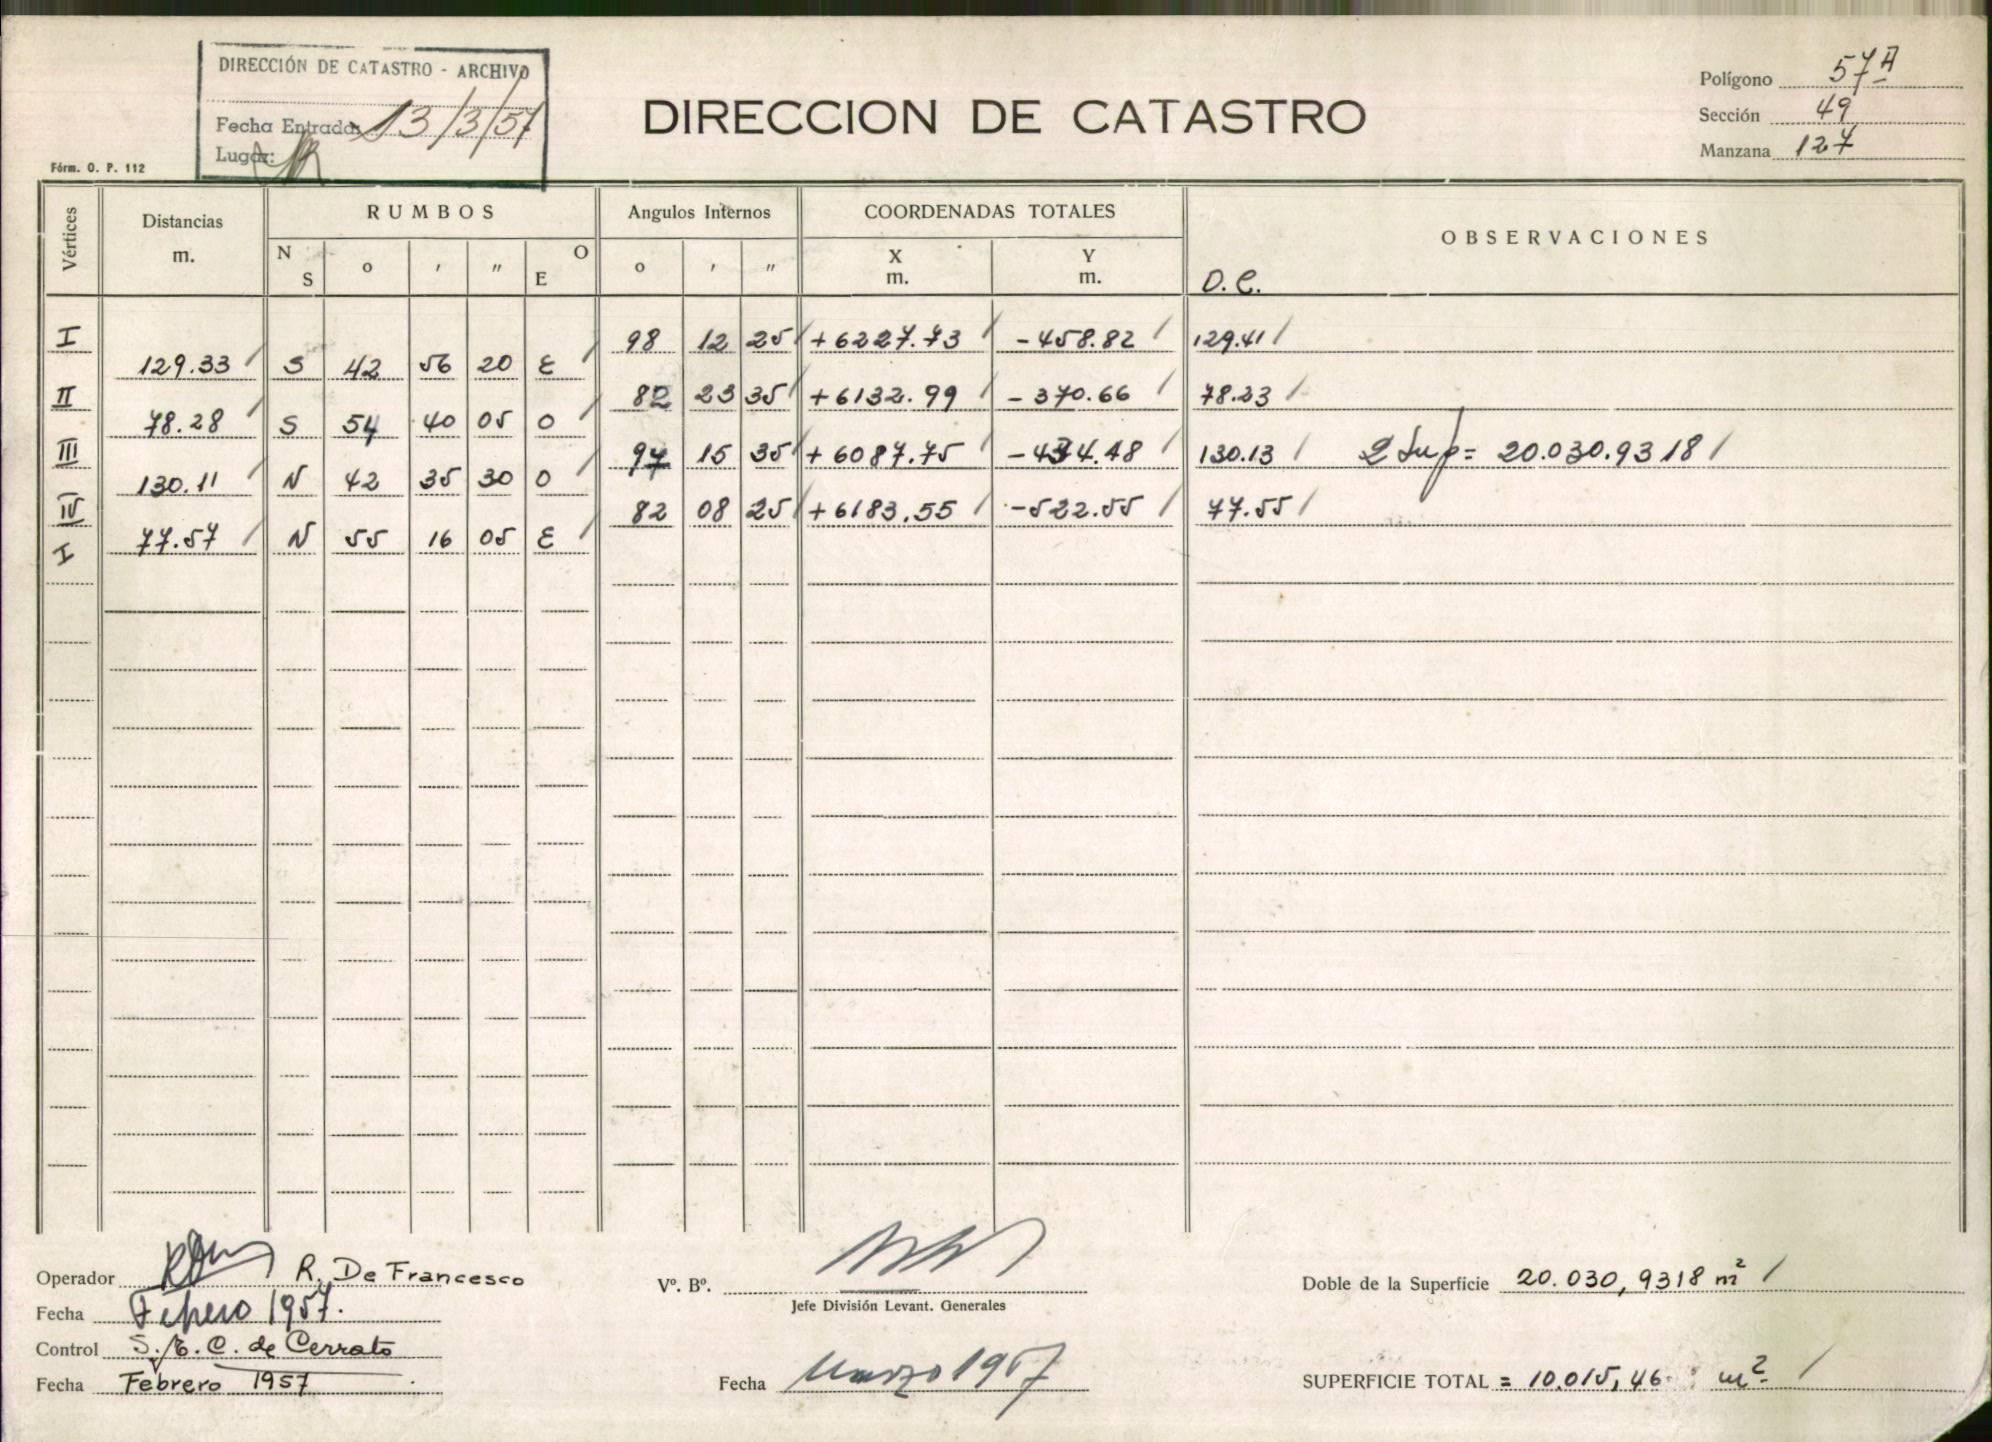 DIRECCIÓN DE CATASTRO - ARCHIVO
Fecha Entrada: 13/3/57
Lugar:
Fórm. O. P. 112
DIRECCION DE CATASTRO
Polígono 57A
Sección 49
Manzana 127
Vértices Distancias m. RUMBOS Angulos Internos COORDENADAS TOTALES OBSERVACIONES
N S o ′ ″ O E o ′ ″ X m. Y m. D.C.
I 98 12 25 +6227.73 -458.82 129.41
129.33 S 42 56 20 E
II 82 23 35 +6132.99 -370.66 78.23
78.28 S 54 40 05 O
III 97 15 35 +6087.75 -434.48 130.13 2 Sup = 20.030.9318
130.11 N 42 35 30 O
IV 82 08 25 +6183.55 -522.55 77.55
77.57 N 55 16 05 E
I
Operador R. De Francesco
Fecha Febrero 1957.
Control S. E. C. de Cerrato
Fecha Febrero 1957
Vº. Bº.
Jefe División Levant. Generales
Fecha Marzo 1957
Doble de la Superficie 20.030,9318 m²
SUPERFICIE TOTAL = 10.015,46 m²